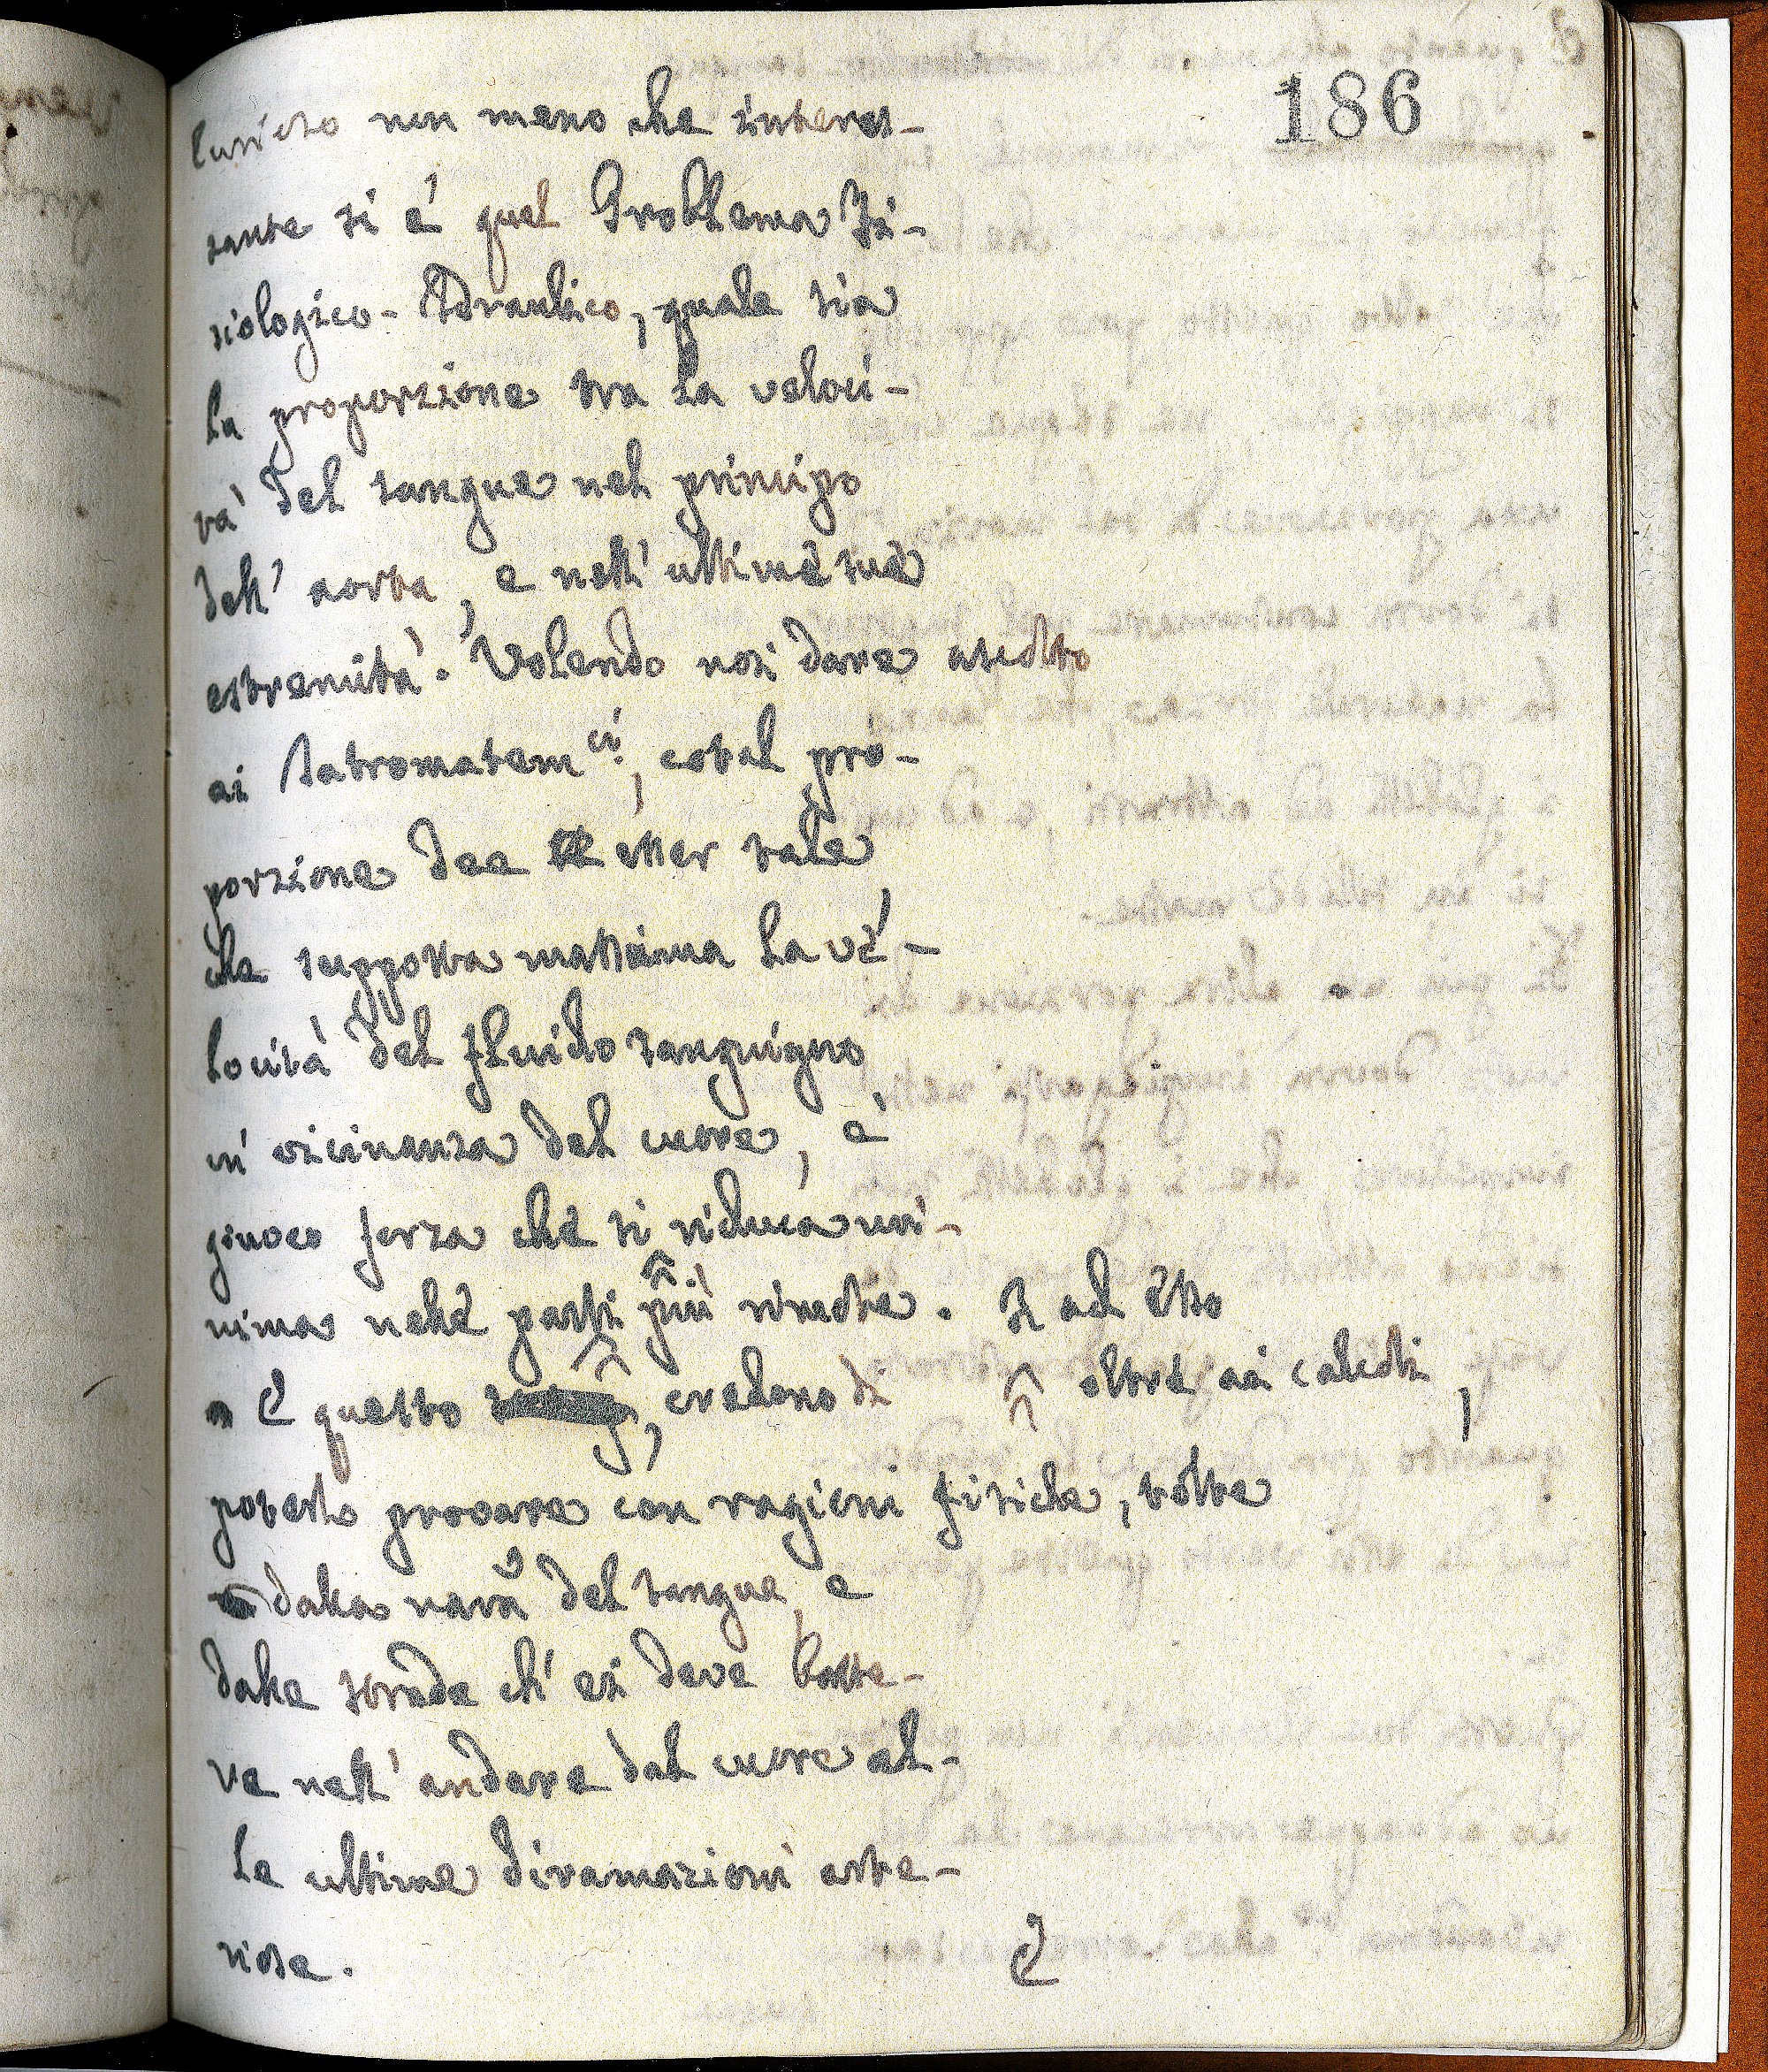 186
Curioso non meno che interes-
sante si è quel Problema Fi-
siologico-Idraulico, quale sia
la proporzione tra la veloci-
tà del sangue nel principio
dell' aorta, e nell' ultime sue
estremità. Volendo noi dare ascolto
ai Iatromatem.ci, cotal pro-
porzione dee esser tale,
che supposta massima la ve-
locità del fluido sanguigno
in vicinanza del cuore, è
giuoco forza che si riduca mi-
nima nelle parti più rimote. Il ad esso
E questo, credono di oltre ai calcoli,
poterlo provare con ragioni fisiche, tolte
dalla natũ del sangue, e
dalle strade ch' ei deve batte-
re nell' andare dal cuore al-
le ultime diramazioni arte-
riose.